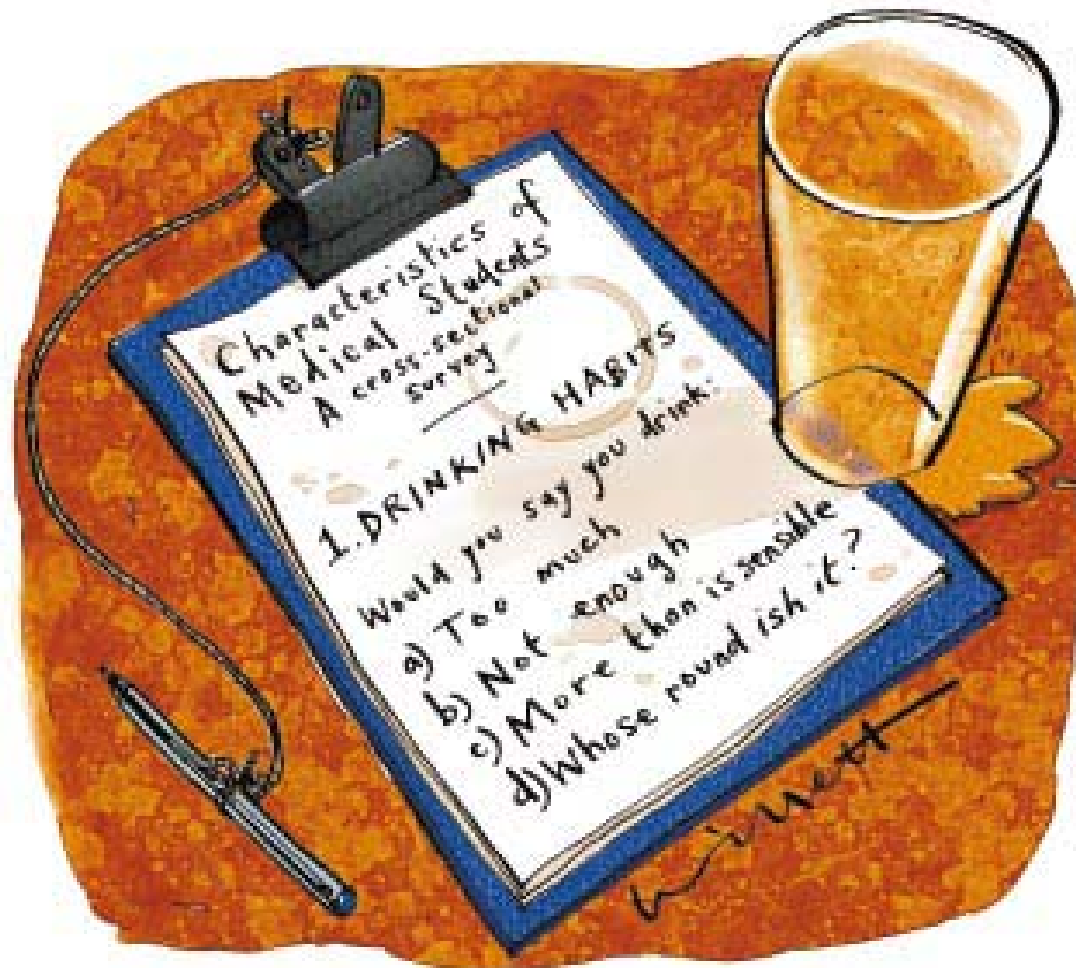 Characteristics of
Medical Students
A cross-sectional
survey
1. DRINKING HABITS
Would you say you drink:
a) Too much
b) Not enough
c) More than is sensible
d) Whose round ish it?